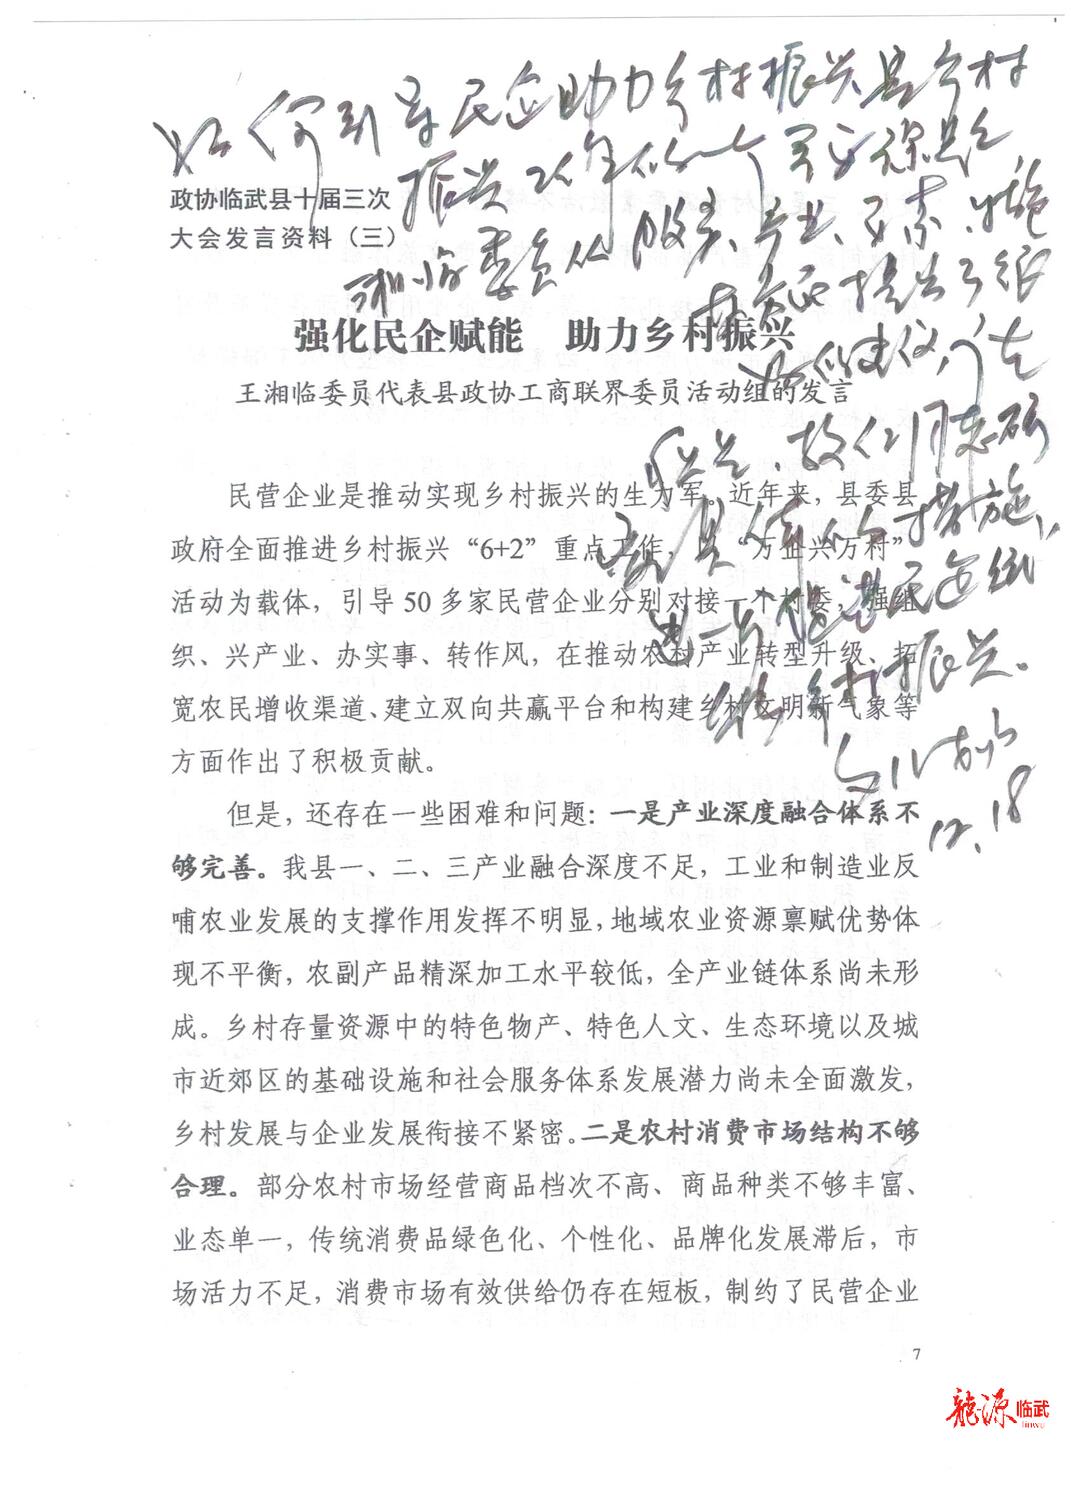 如何引导民企助力乡村振兴是乡村
振兴工作的一个重要课题,
湘临委员从服务、产业、要素、措施
等方面提出了很
好的建议,请
兴兰、敬仁同志研
究具体的措施,
进一步促进民企组
织乡村振兴。
12.18
政协临武县十届三次
大会发言资料（三）
强化民企赋能 助力乡村振兴
王湘临委员代表县政协工商联界委员活动组的发言
民营企业是推动实现乡村振兴的生力军。近年来，县委县
政府全面推进乡村振兴“6+2”重点工作，“万企兴万村”
活动为载体，引导 50 多家民营企业分别对接一个村委，强组
织、兴产业、办实事、转作风，在推动农村产业转型升级、拓
宽农民增收渠道、建立双向共赢平台和构建乡村文明新气象等
方面作出了积极贡献。
但是，还存在一些困难和问题：一是产业深度融合体系不
够完善。我县一、二、三产业融合深度不足，工业和制造业反
哺农业发展的支撑作用发挥不明显，地域农业资源禀赋优势体
现不平衡，农副产品精深加工水平较低，全产业链体系尚未形
成。乡村存量资源中的特色物产、特色人文、生态环境以及城
市近郊区的基础设施和社会服务体系发展潜力尚未全面激发，
乡村发展与企业发展衔接不紧密。二是农村消费市场结构不够
合理。部分农村市场经营商品档次不高、商品种类不够丰富、
业态单一，传统消费品绿色化、个性化、品牌化发展滞后，市
场活力不足，消费市场有效供给仍存在短板，制约了民营企业
7
龙源临武
LINWU